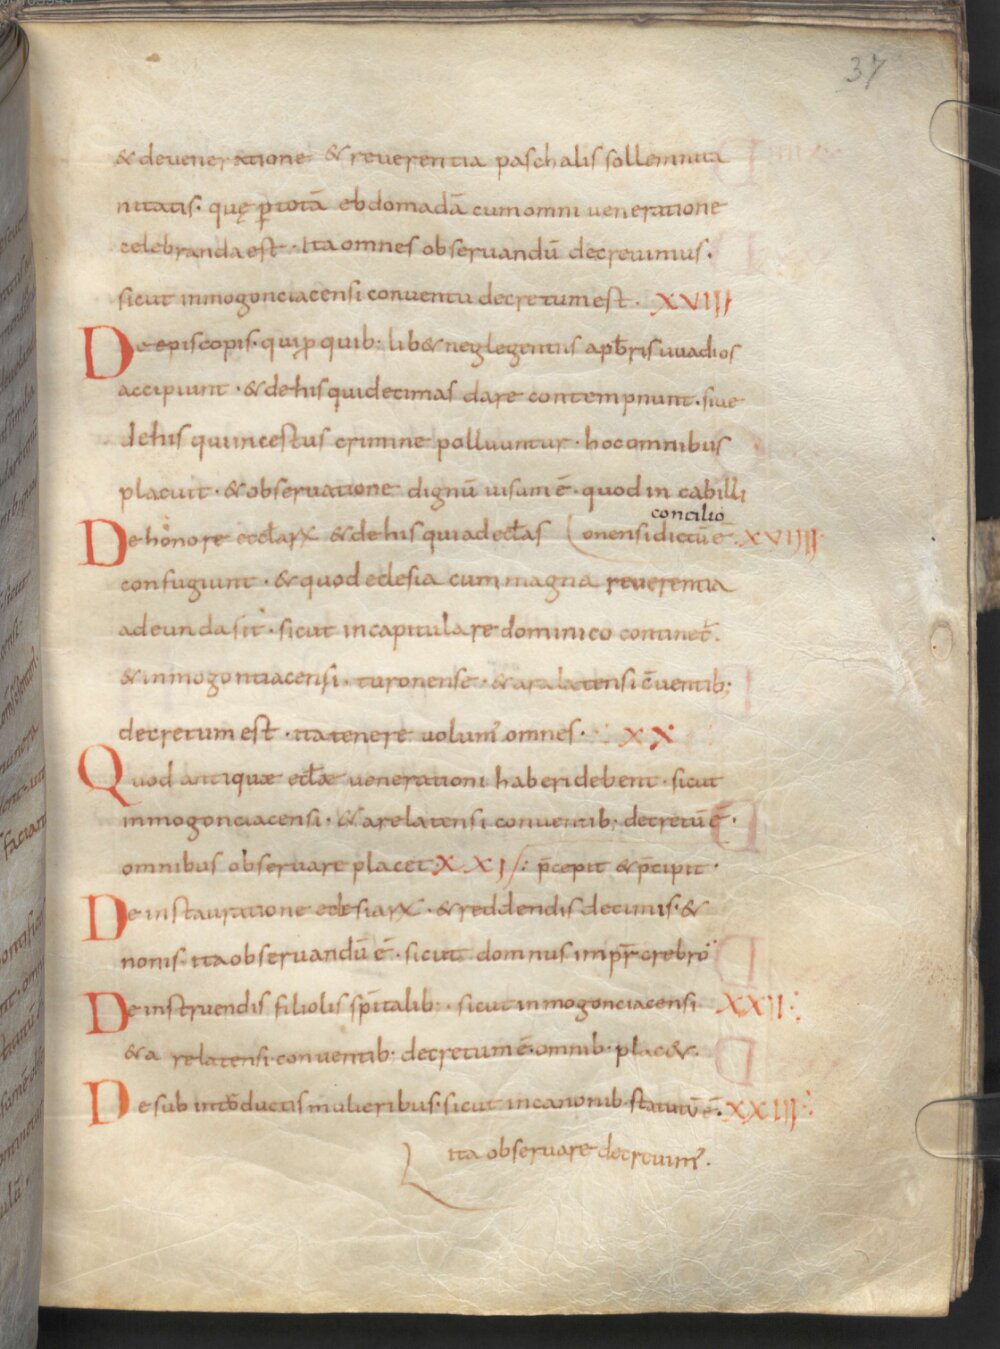 37
& deveneratione & reverentia paschalis sollemnita
nitatis· quę ꝑtotā ebdomadā cum omni veneratione
celebranda est · Ita omnes observandū decrevimus·
sicut inmogonciacensi conventu decretum est · XVIII
De episcopis· qui ꝓ quib: lib& neglegentiis a pƀris uuadios
accipiunt · & de his qui decimas dare contempnunt · sive
de his qui incestus crimine polluuntur · hoc omnibus
placuit · & observatione dignū visum ē· quod in cabilli
concilio
De honore eccłarꝝ & de his qui ad eccłas onensi dictū ē· XVIIII
confugiunt · & quod eclesia cum magna reverentia
adeunda sit · sicut in capitulare dominico continet̄·
& inmogontiacensi · turonense · & aralatensi c̄ventib;
decretum est · ita tenere volum̄ omnes · XX
Quod antiquæ eccłæ venerationi haberi debent · sicut
inmogonciacensi · & arelatensi conventib· decretū ē·
omnibus observare placet: XXI: p̄cepit & p̄cipit ·
De instauratione eclesiarꝝ · & reddendis decimis · &
nonis· ita observandū ē· sicut domnus imp̄r crebro
De instruendis filiolis sp̄italib: · sicut inmogonciacensi XXII:
& a relatensi conventib· decretum ē· omnib· plac&·
De sub introductis mulieribus· sicut in canonib· statutū ē· XXIII:
ita observare decrevim̄·